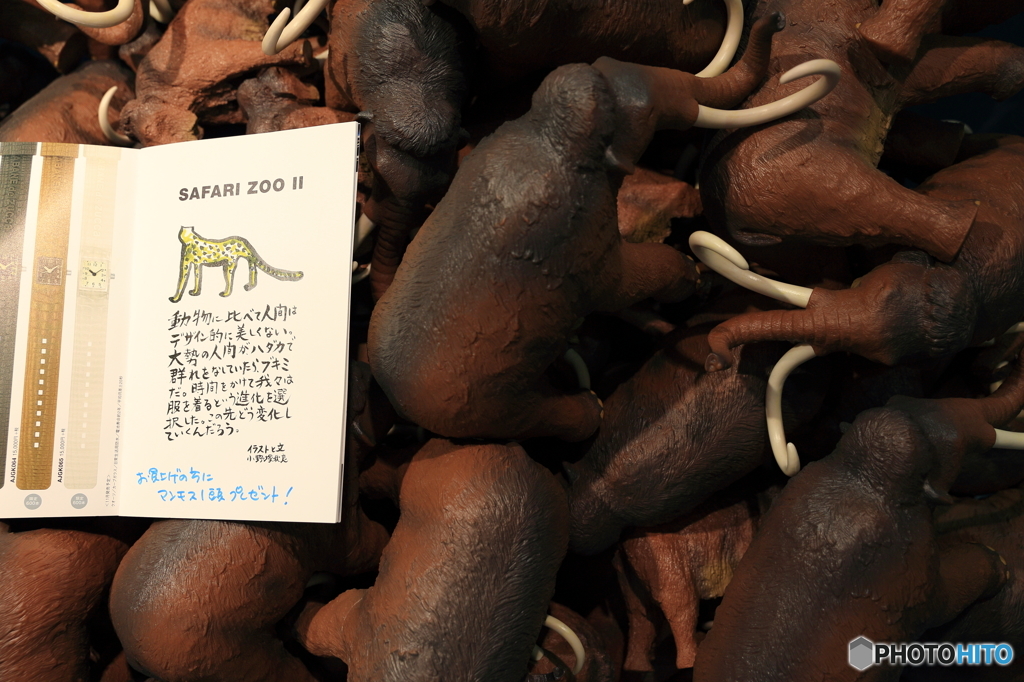 SAFARI ZOO II
動物に比べて人間は
デザイン的に美しくない。
大勢の人間がハダカで
群れをなしていたら、ブキミ
だ。時間をかけて我々は
服を着るという進化を選
択した。この先どう変化し
ていくんだろう。
イラストと文
お買上げの方に
マンモス1頭プレゼント!
AJGK064 15,000円+税
AJGK065 15,000円+税
PHOTOHITO